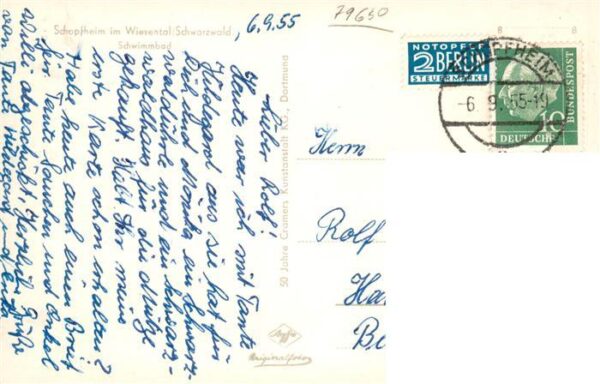 Schopfheim im Wiesental/Schwarzwald
Schwimmbad
, 6.9.55
79650
8 8
NOTOPFER
2 BERLIN
STEUERMARKE
PFHEIM
-6. 9. 55-19
10
DEUTSCHE
BUNDESPOST
Lieber Rolf!
Heute war ich mit Tante
Hildegard aus sie hat für
Dich und Monika ein Schwarz-
walduhrle und ein Schwarz-
waldhaus für die
gekauft. Habt Ihr meine
erste Karte schon erhalten?
Habe heute auch einen Brief
für Tante und Onkel
Willi abgeschickt, Herzliche Grüße
von Tante Hildegard und
50 Jahre Cramers Kunstanstalt KG., Dortmund
Agfa
Originalfoto
Herrn
Rolf
Ha
Be